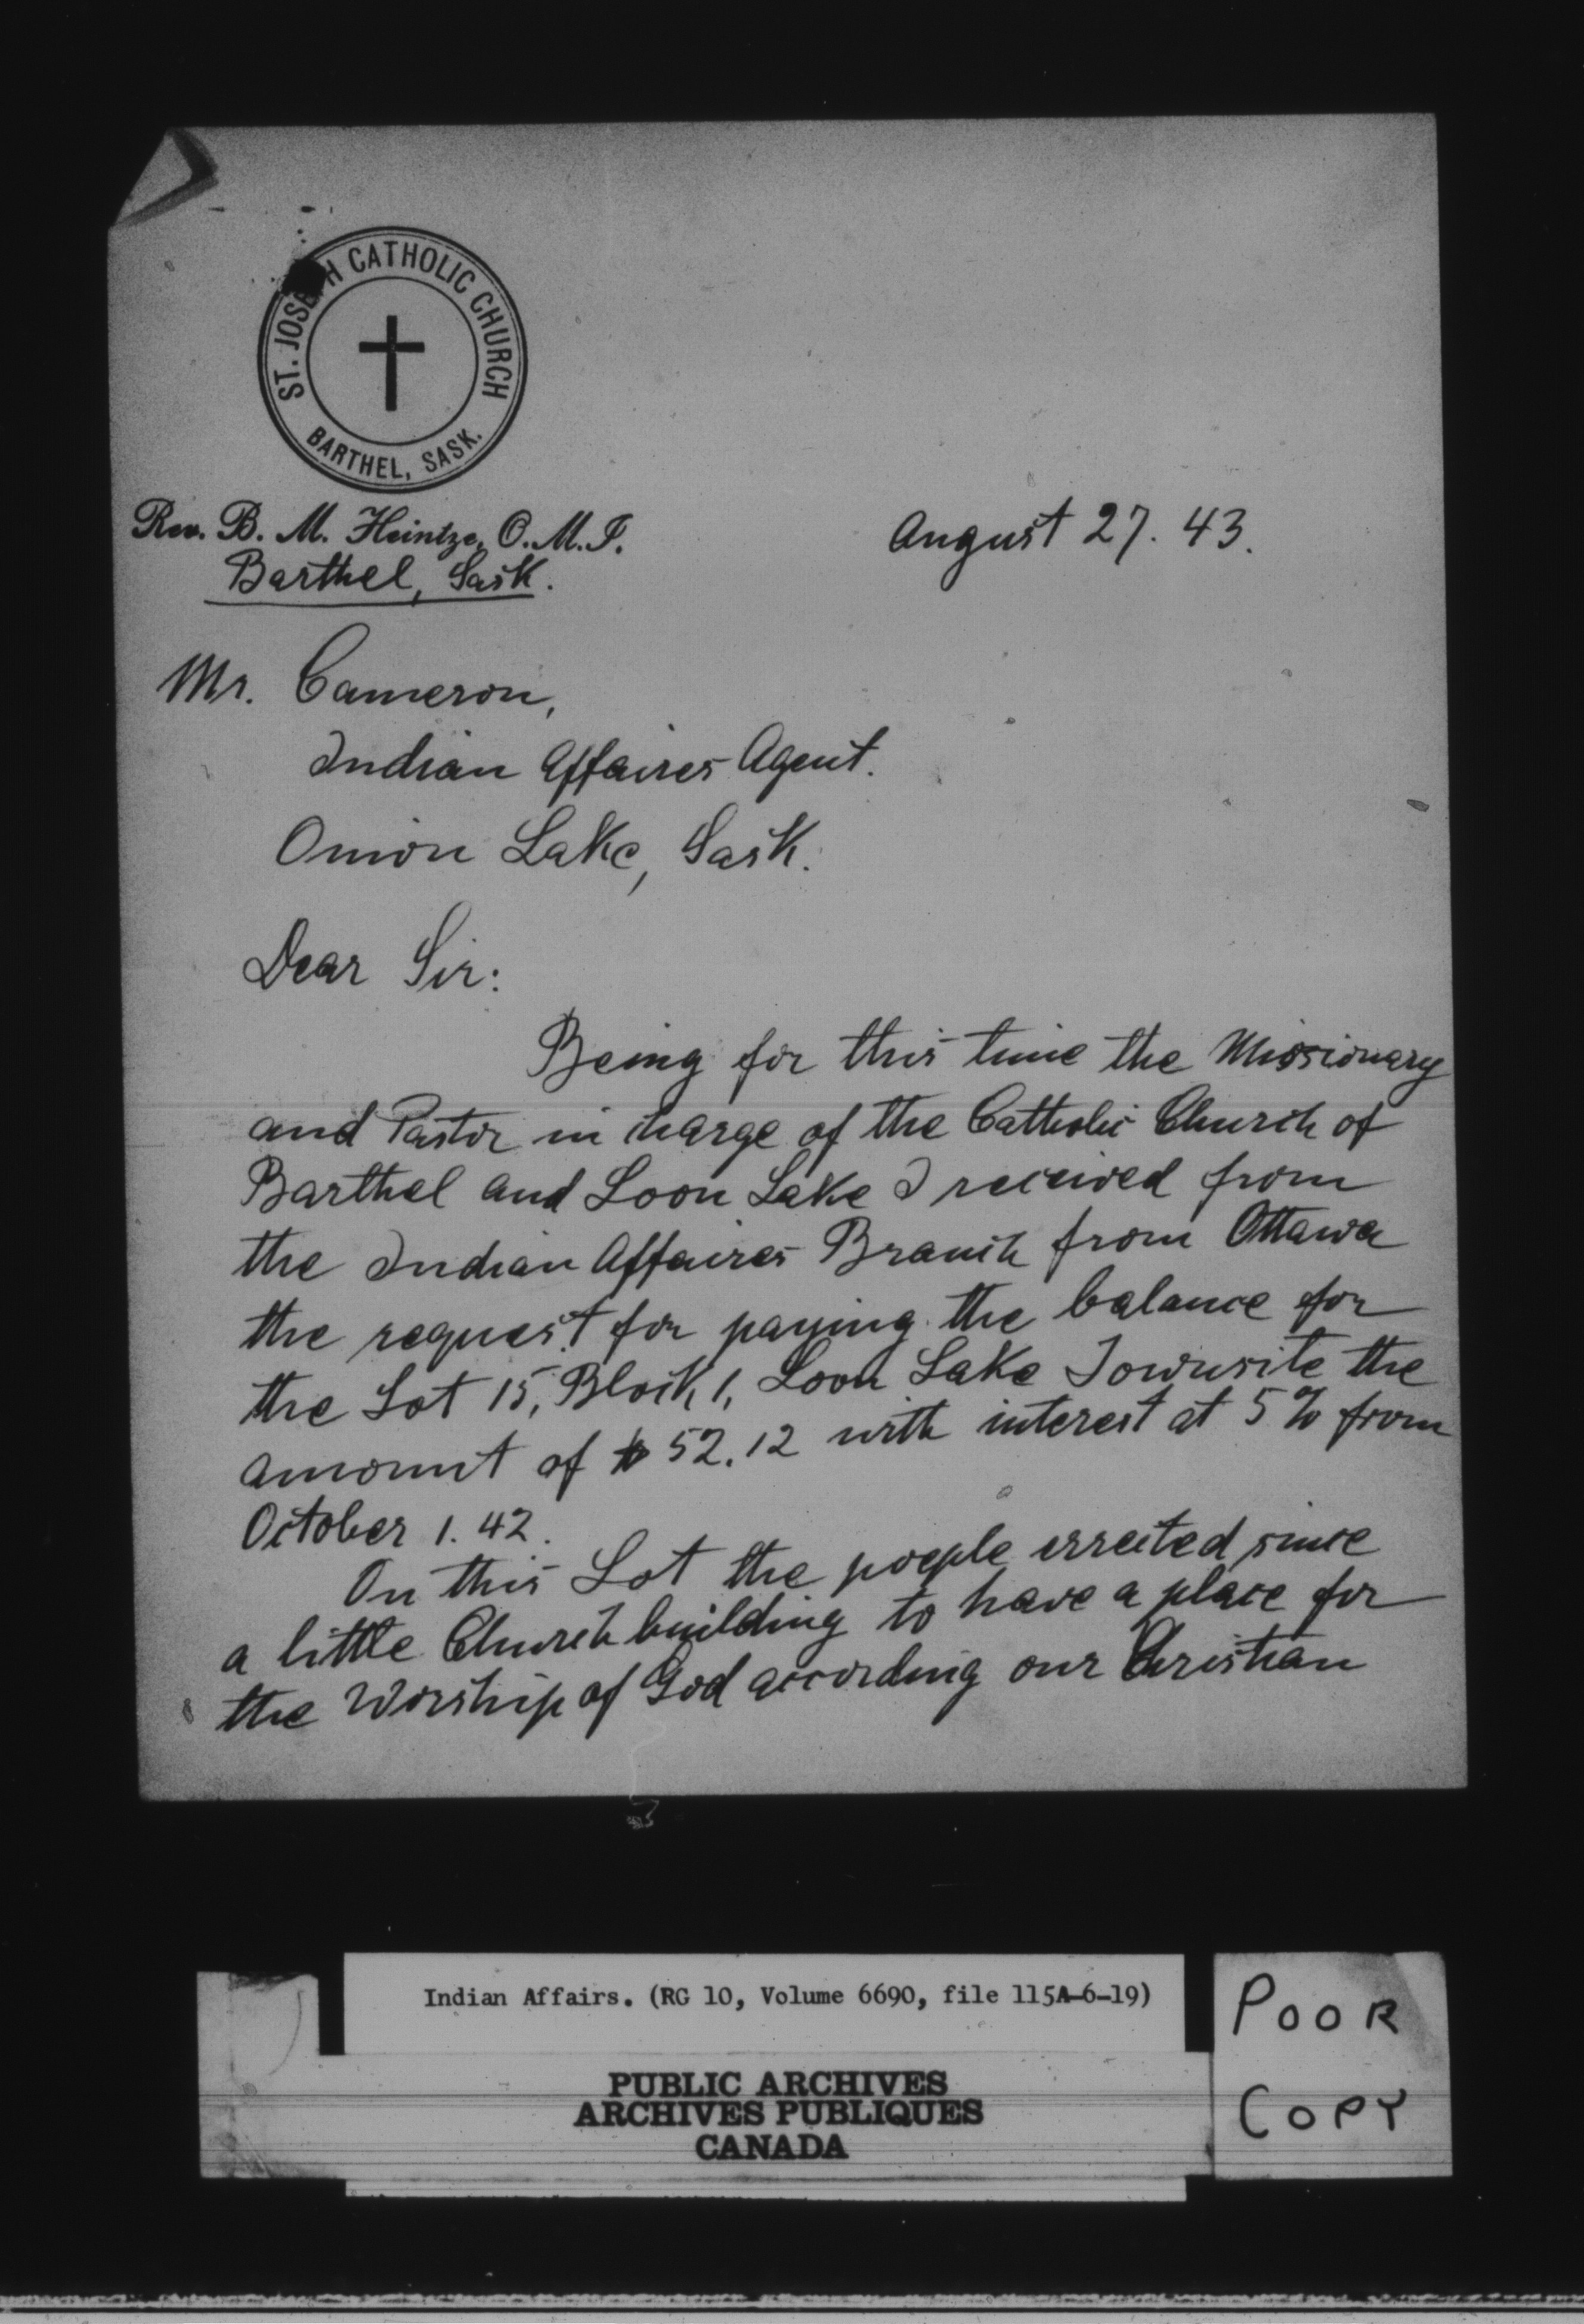 ST. JOSEPH CATHOLIC CHURCH
BARTHEL, SASK.
Rev. B. M. Heintze, O. M. I.
Barthel, Sask.
August 27. 43.
Mr. Cameron,
Indian Affaires Agent.
Onion Lake, Sask.
Dear Sir:
Being for this time the Missionary
and Pastor in charge of the Catholic Church of
Barthel and Loon Lake I received from
the Indian Affaires Branch from Ottawa
the request for paying the balance for
the Lot 15, Block 1, Loon Lake Townsite the
amount of $ 52.12 with interest at 5 % from
October 1. 42.
On this Lot the poeple errected since
a little Church building to have a place for
the Worship of God according our Christian
Indian Affairs. (RG 10, Volume 6690, file 115A-6-19)
PUBLIC ARCHIVES
ARCHIVES PUBLIQUES
CANADA
POOR
COPY